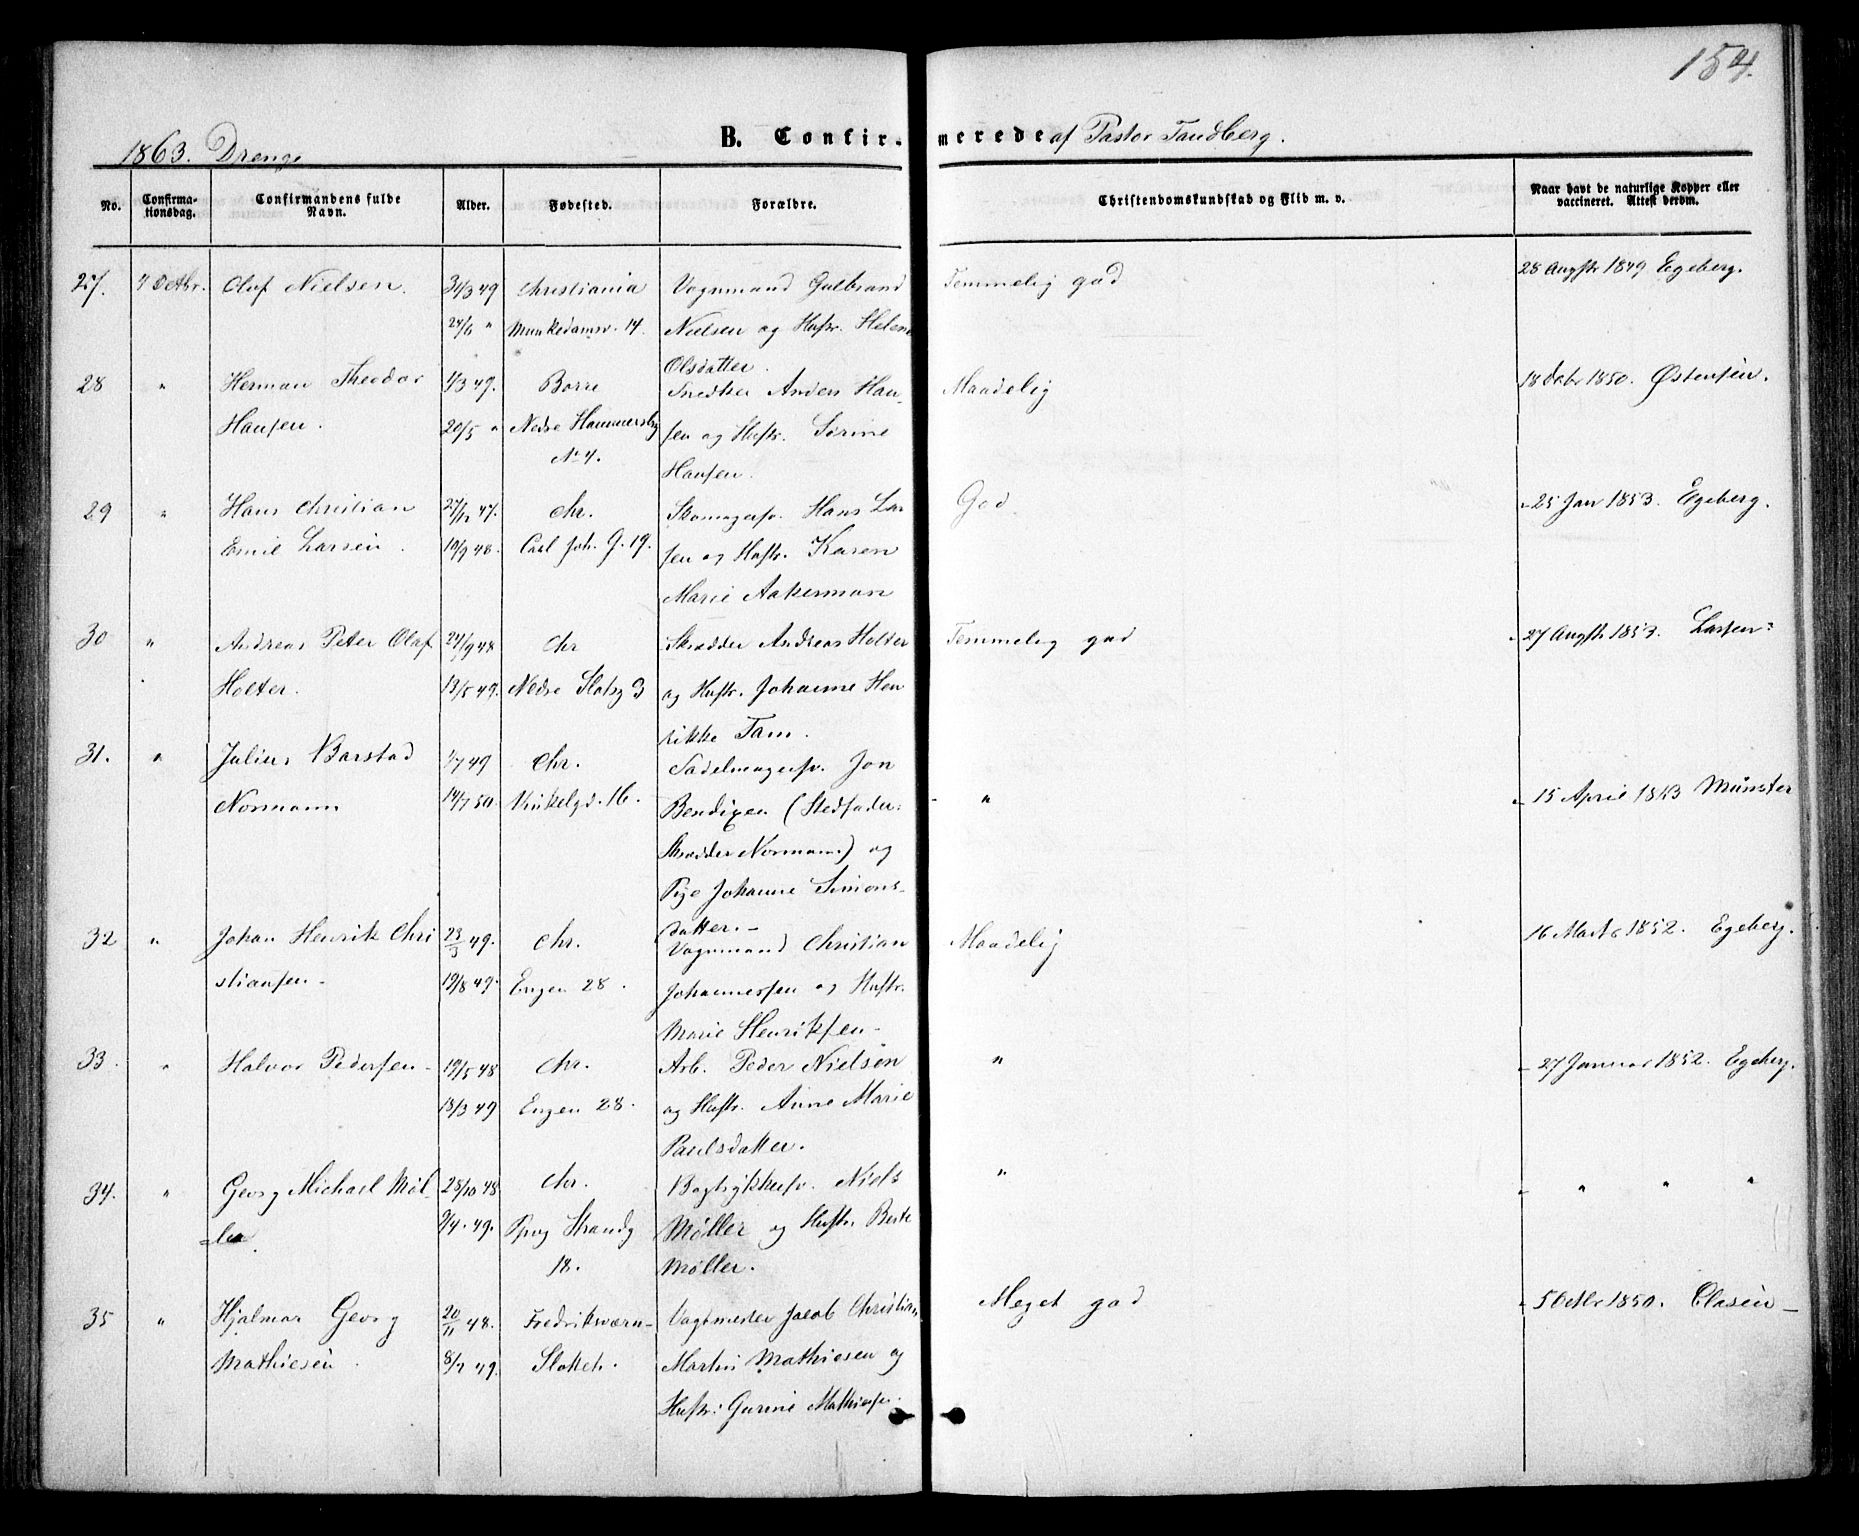 154.
1863. Drenge
B. Confirmerede af Pastor Tandberg.
No. Confirmationsdag. Confirmandens fulde Navn. Alder. Fødested. Forældre. Christendomskundskab og Flid m. v. Naar havt de naturlige Kopper eller vaccineret. Attest derom.
27. 4 Octbr. Oluf Nielsen. 31/3 49 Christiania Vognmand Gulbrand Temmelig god 28 Augst 1849 Egeberg.
24/6 " Munkedamsv. 14. Nielsen og Hustr. Helene
Olsdatter.
28 " Herman Theodor 1/3 49. Borre Snedker Anders Han- Maadelig 18 Debr 1850. Østensen.
Hansen. 20/5 " Nedre Hammersbg sen og Hustr. Sørine
No 4. Hansen.
29 " Hans Christian 27/12 47. Chr. Skomagersv. Hans Lar God. - 25 Jan 1853. Egeberg.
Emil Larsen. 10/9 48. Carl Joh. G. 19. sen og Hustr. Karen
Marie Aakerman
30 " Andreas Peter Olaf 24/9 48 Chr Skrædder Andreas Holter Temmelig god " 27 Augst 1853. Lassen
Holter. 13/5 49. Nedre Slotsg 3 og Hustr. Johanne Hen
rikke Tam.
31. " Julius Barstad 1/7 49 Chr. Sadelmagersv. Jon
Normann 14/7 50. Vinkelgd. 16. Bendixen (Stedfader: " - 15 April 1863 Münster
Skrædder Normann) og
Pige Johanne Simons-
datter.-
32 " Johan Henrik Chri 23/3 49. Chr. Vognmand Christian Maadelig 16 Marts 1852. Egeberg.
stiansen- 19/8 49. Engen 28. Johannessen og Hustr.
Marie Henriksen-
33. " Halvor Pedersen- 19/5 48 Chr. Arb. Peder Nielsen " - 27 Januar 1852. Egeberg.
18/3 49 Engen 28. og Hustr. Anne Marie
Paulsdatter.
34. " Georg Michael Møl- 28/10 48 Chr. Bogtrykkersv. Niels " " " " "
ler. 9/4. 49. Strandg Møller og Hustr. Berte
18. Møller.
35 " Hjalmar Georg 20/11 48. Fredriksværn- Vagtmester Jacob Christian Meget god " 5 Octbr 1850. Clasen-
Mathiesen. 8/7 49. Slottet. Martin Mathiesen og
Hustr: Gurine Mathiesen.